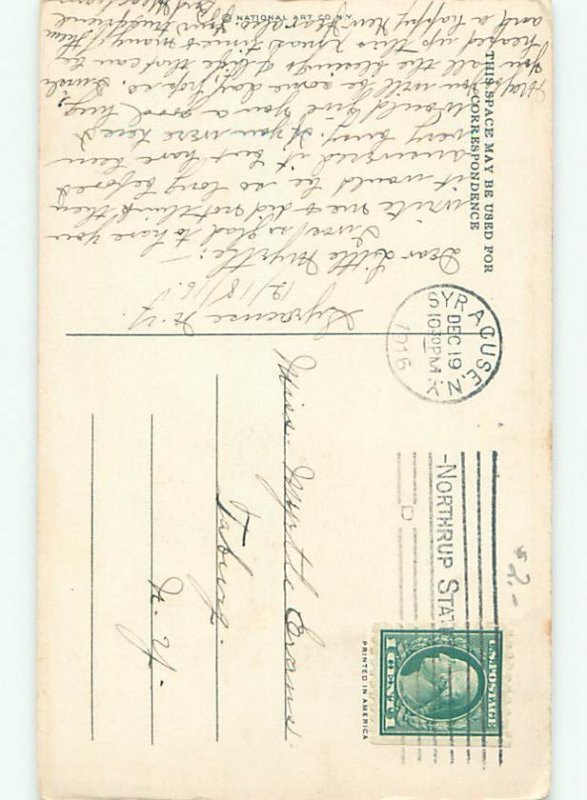 THIS SPACE MAY BE USED FOR
CORRESPONDENCE
Syracuse N.Y.
12/18/16.
Dear Little Myrtle:-
I was so glad to have you
write me & did not think then
it would be so long before I
answered it but have been
very busy. If you were here I
would give you a good hug,
you will be some day, I hope. Such
all the blessings of life that can be
heaped up this Xmas times many of them
and a happy New Year also
© NATIONAL ART CO. N.Y.
SYRACUSE, N.Y.
DEC 19
10 30 PM
1916
NORTHRUP STA
D
U.S. POSTAGE
1 CENT 1
PRINTED IN AMERICA
Miss. Myrtle Evans.
Taberg.
N.Y.
$2.-